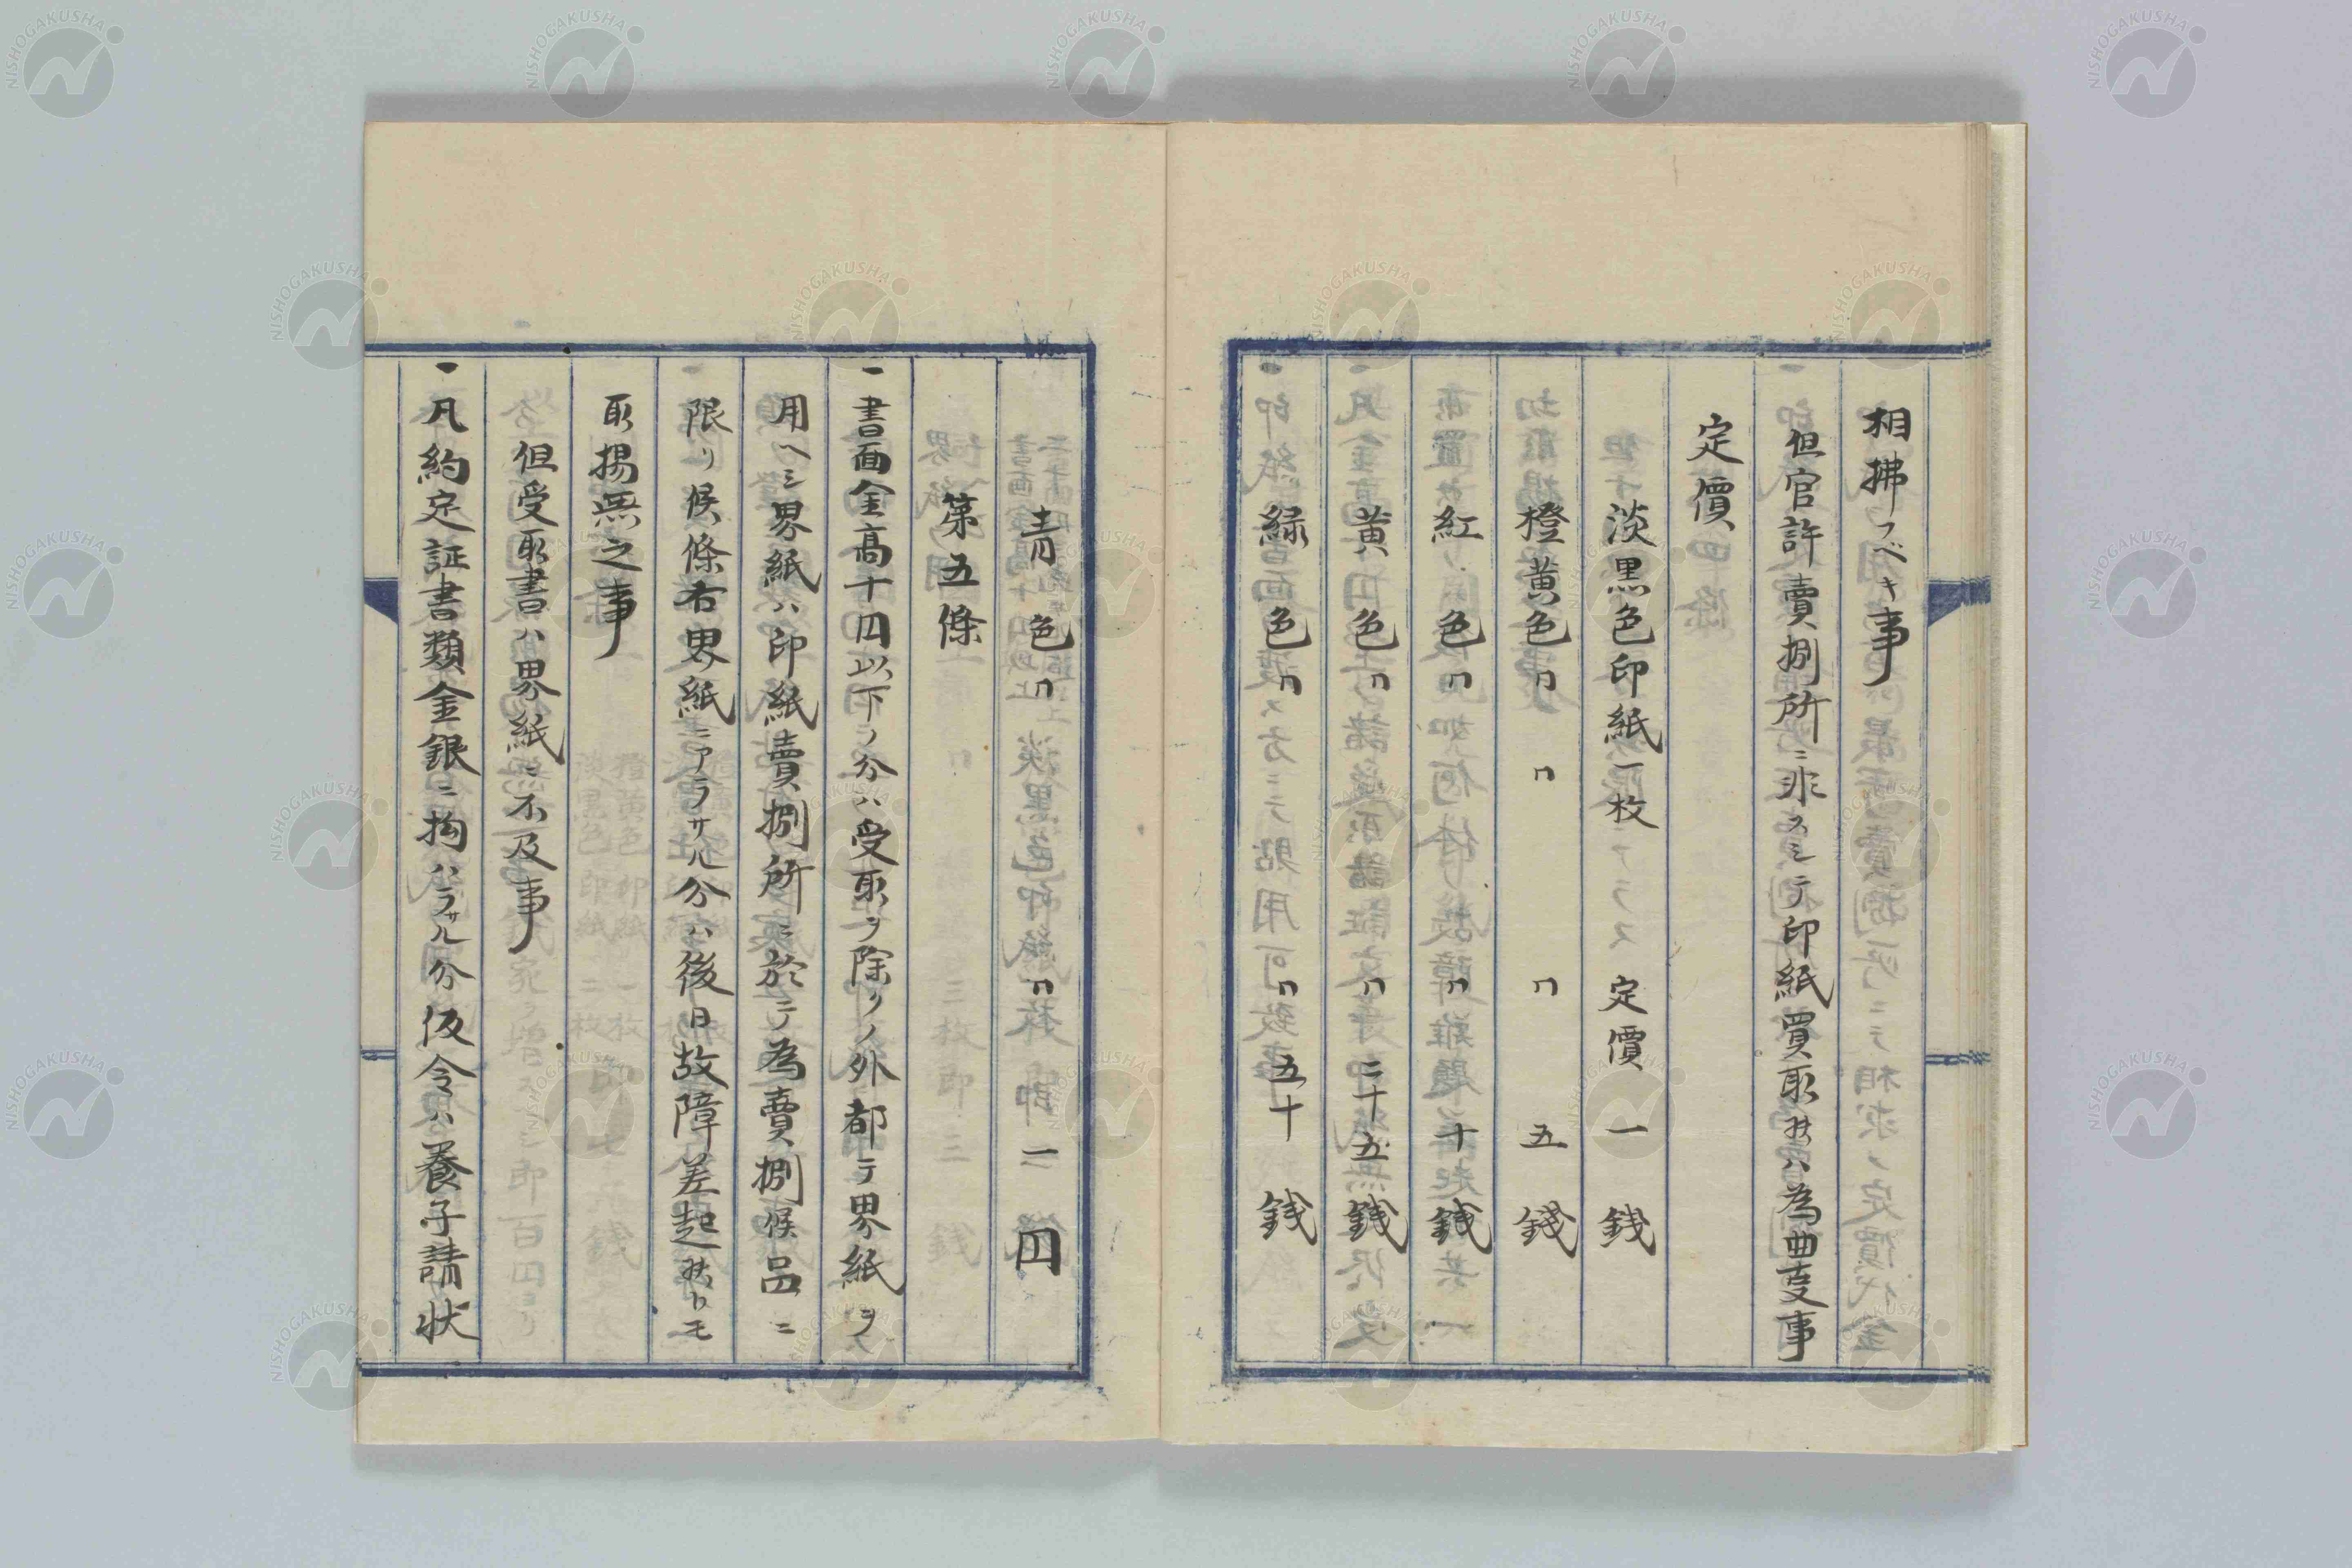 相拂フベキ事
但官許賣捌所ニ非スシテ印紙買取候ハ為曲叓事
定價
淡黒色印紙一枚 定價 一 錢
橙黄色〃 〃 〃 五 錢
紅 色〃 〃 十 錢
黄 色〃 〃 二十五 錢
緑 色〃 〃 五十 錢
青 色〃 〃 一 円
第五條
一書面金高十円以下ノ分ハ受取ヲ除クノ外都テ界紙ヲ
用ヘシ界紙ハ印紙賣捌所ニ於テ為賣捌候品ニ
限リ候條右界紙ニアラサル分ハ後日故障差起候トモ
取揚無之事
但受取書ハ界紙ニ不及事
一凡約定証書類金銀ニ拘ハラサル分仮令ハ養子請状
NISHOGAKUSHA